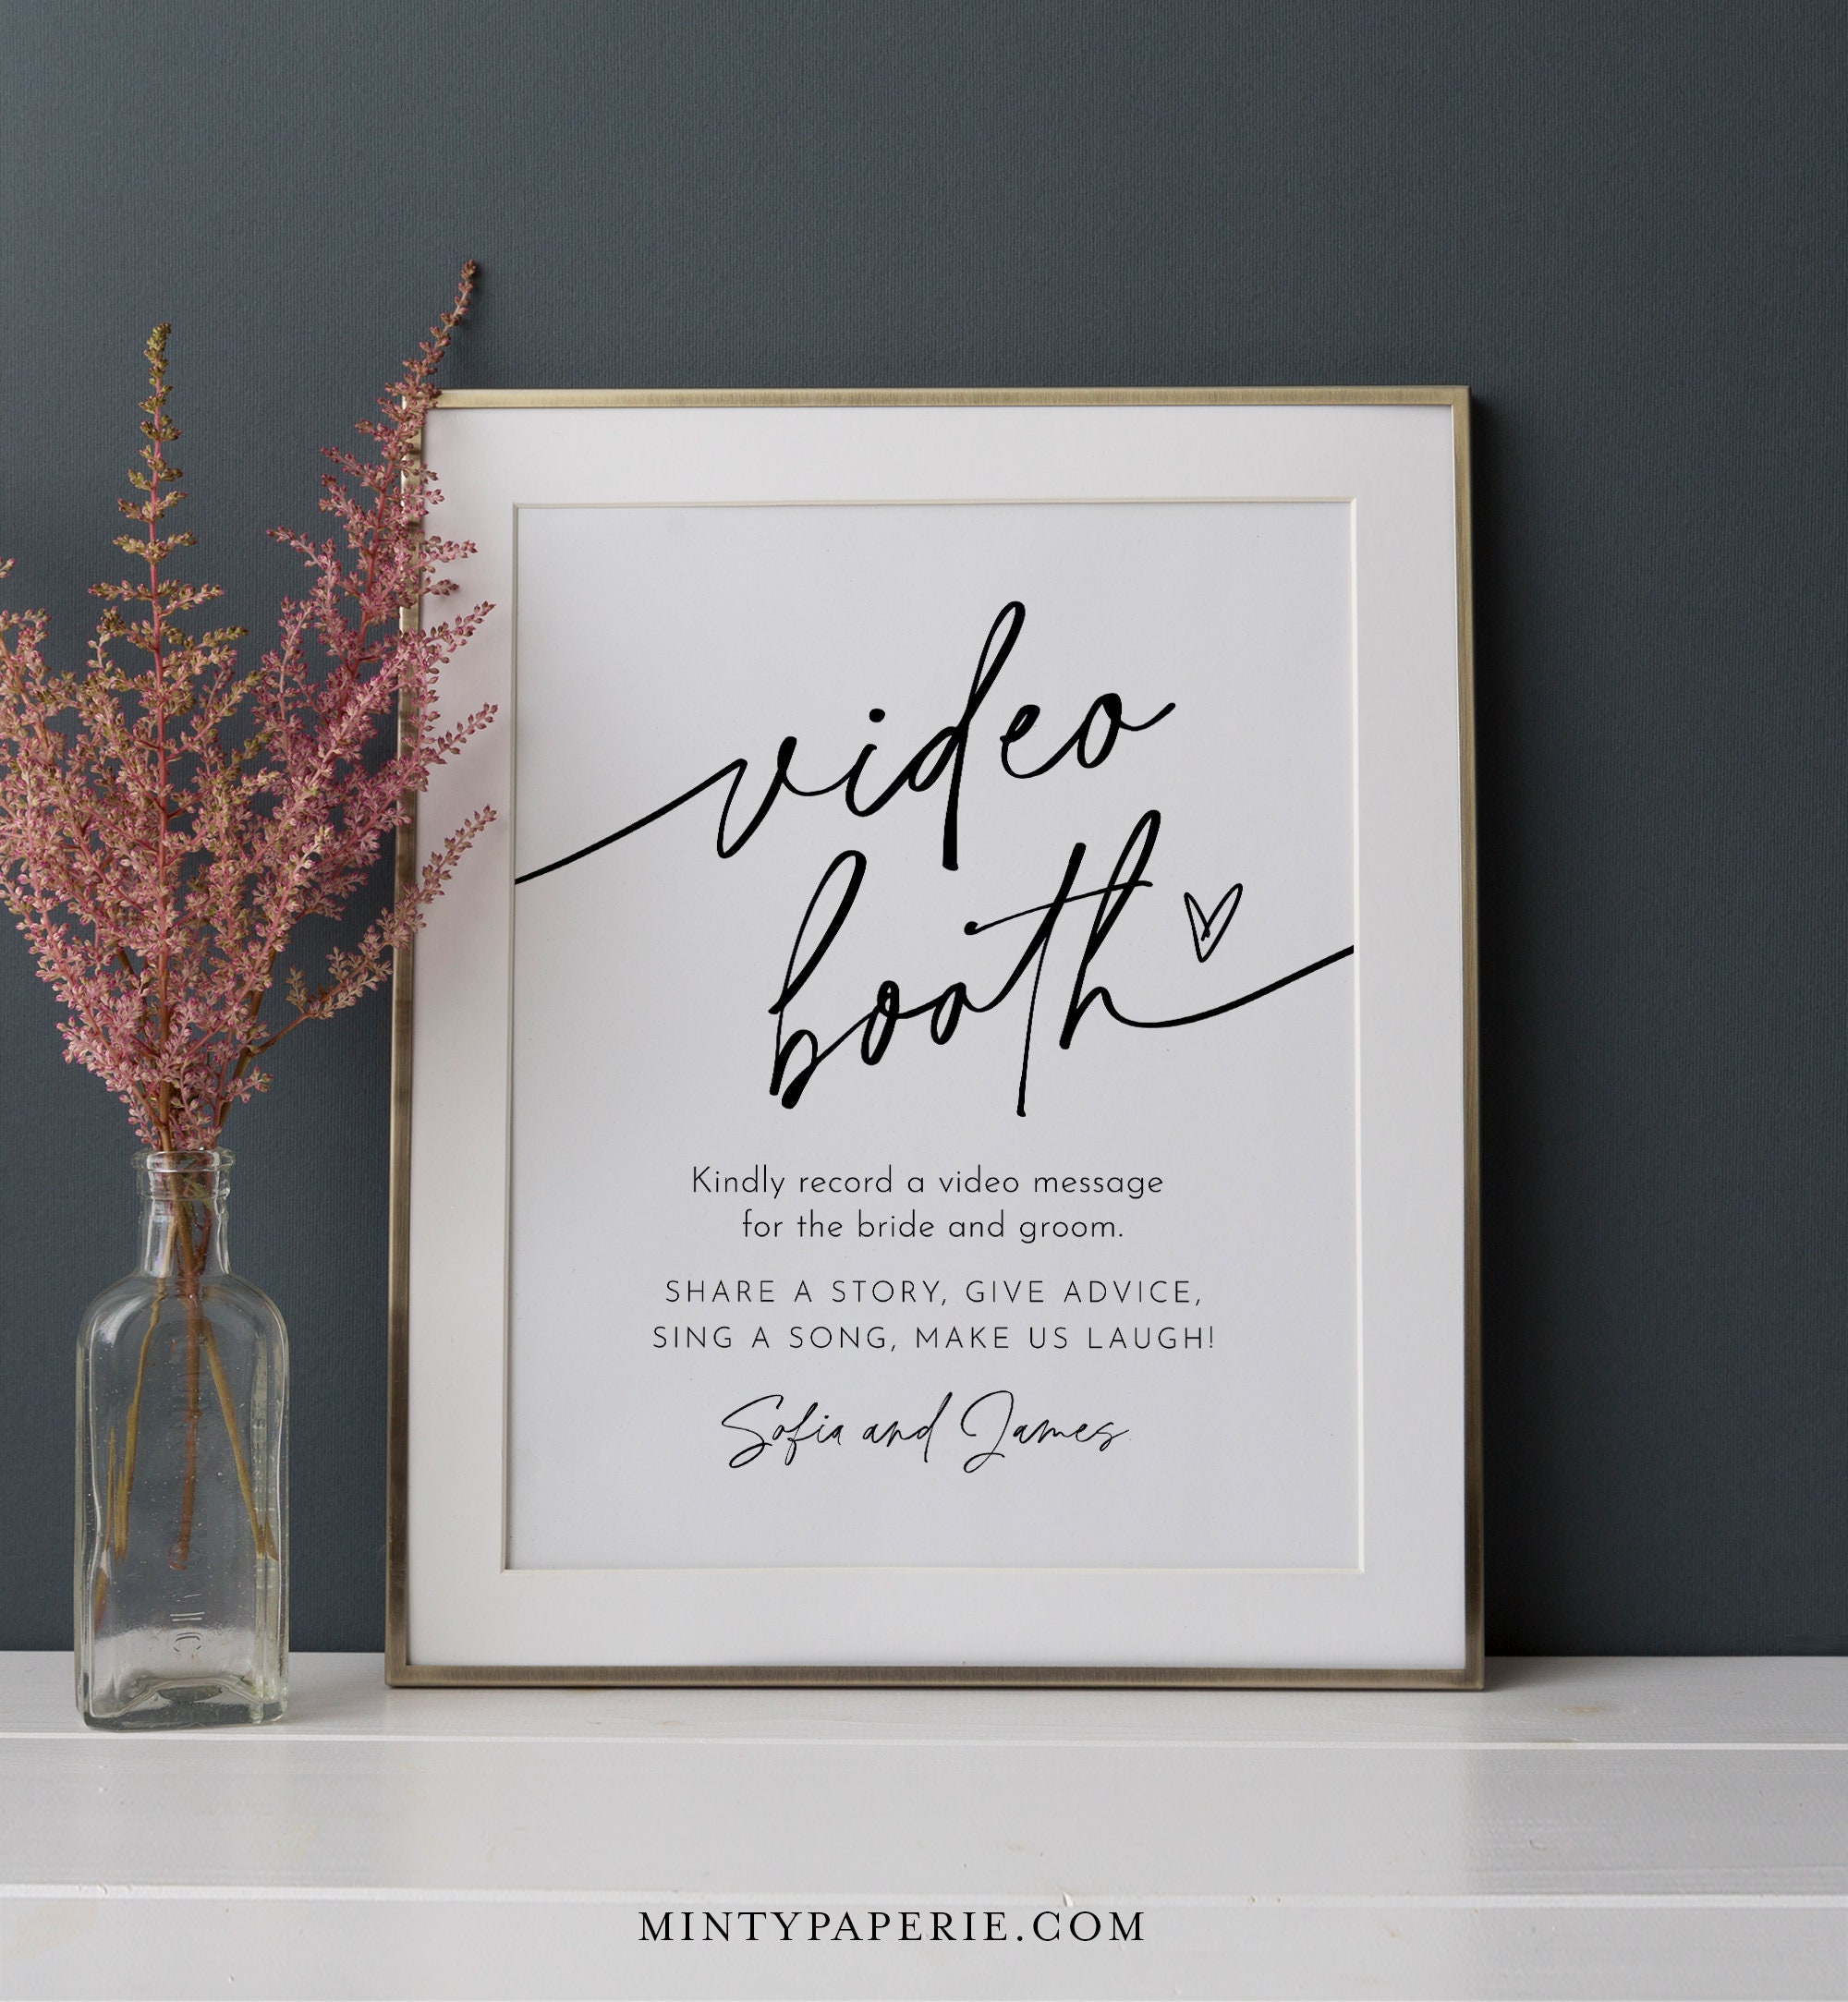 video
booth
Kindly record a video message
for the bride and groom.
SHARE A STORY, GIVE ADVICE,
SING A SONG, MAKE US LAUGH!
Sofia and James
MINTYPAPERIE.COM